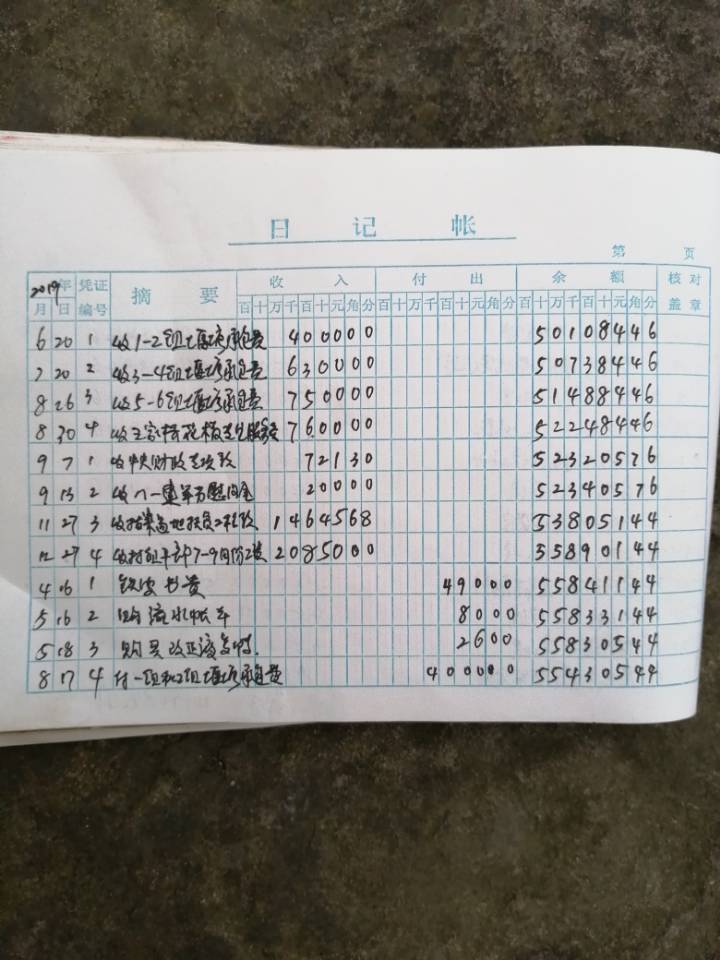 日记帐
第 页
2019年 凭证 摘要 收入 付出 余额 核对
月 日 编号 百十万千百十元角分 百十万千百十元角分 百十万千百十元角分 盖章
6 20 1 收1-2组堰塘承包费 400000 50108446
7 20 2 收3-4组堰塘承包费 630000 50738446
8 26 3 收5-6组堰塘承包费 750000 51488446
8 30 4 收王家 760000 52248446
9 7 1 收中央财政 72130 52320576
9 13 2 收八一建军节慰问金 20000 52340576
11 27 3 收 地扶贫工程款 1464568 53805144
12 27 4 收村组干部7-9月份工资 2085000 55890144
4 16 1 书费 49000 55841144
5 16 2 购流水帐本 8000 55833144
5 18 3 购买改正液 2600 55830544
8 17 4 付一组和2组堰塘承包费 400000 55430544